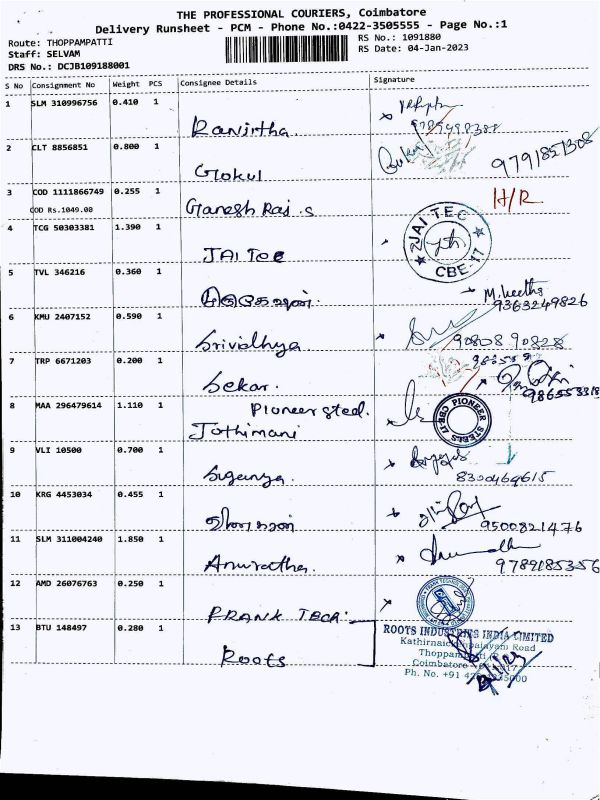 THE PROFESSIONAL COURIERS, Coimbatore
Delivery Runsheet - PCM - Phone No.:0422-3505555 - Page No.:1
Route: THOPPAMPATTI
Staff: SELVAM
DRS No.: DCJB109188001
RS No.: 1091880
RS Date: 04-Jan-2023
S No Consignment No Weight PCS Consignee Details Signature
1 SLM 310996756 0.410 1
Ranirtha.
2 CLT 8856851 0.800 1
Gokul
9791851308
3 COD 1111866749 0.255 1
COD Rs.1049.00
Ganesh Raj. S
H/R
4 TCG 50303381 1.390 1
JAI TEC
JAI TEC
CBE-17
5 TVL 346216 0.360 1
9363249826
6 KMU 2407152 0.590 1
Srividhya
90808 90828
7 TRP 6671203 0.200 1
Sekar.
8 MAA 296479614 1.110 1
Pioneer steel.
Jothimani
PIONEER STEELS
9 VLI 10500 0.700 1
Suganya.
8300464615
10 KRG 4453034 0.455 1
9500821476
11 SLM 311004240 1.850 1
Anuratha.
9789185356
12 AMD 26076763 0.250 1
FRANK TECH
13 BTU 148497 0.280 1
Roots
ROOTS INDUSTRIES INDIA LIMITED
Road
Coimbatore
Ph. No. +91